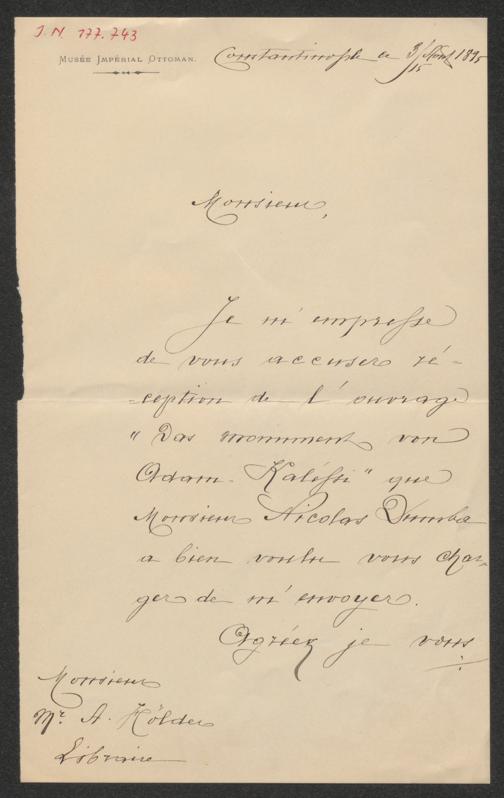 J.N. 177.743
MUSÉE IMPÉRIAL OTTOMAN.
Constantinople ce 3/15 Août 1895
Monsieur,
Je m'empresse
de vous accuser ré-
-ception de l'ouvrage
"Das monument von
Adam-Kalissi" que
Monsieur Nicolas Dumba
a bien voulu vous char-
ger de m'envoyer.
Agréez je vous
Monsieur
Mr. A. Hölder
Libraire